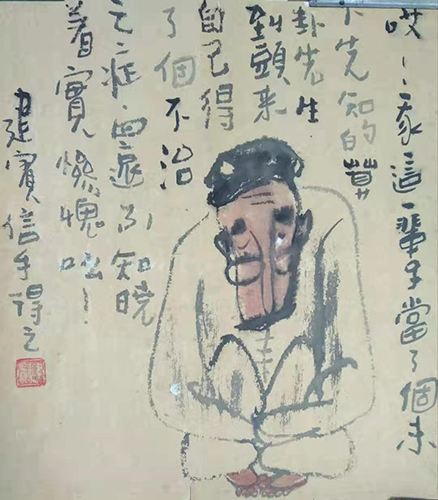 哎！我這一輩子當了個未
卜先知的算
卦先生
到頭来
自己得
了個不治
之症知曉
着實慚愧！
建賓信手得之